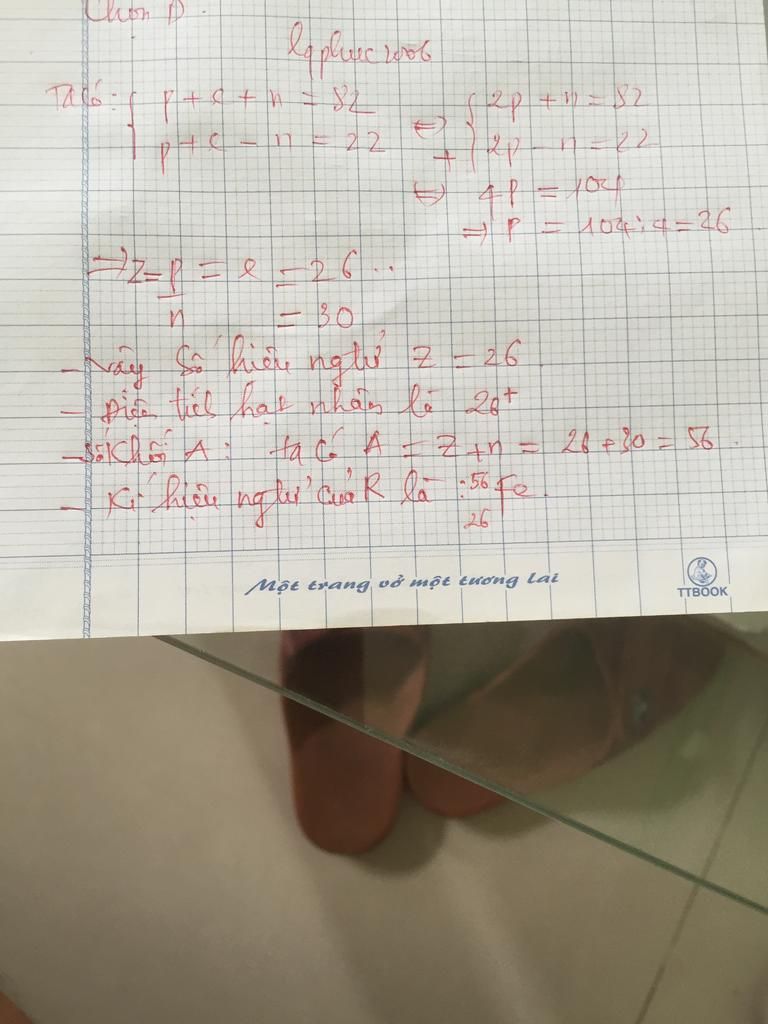 Chọn D.
lqphuc2006
Ta có: { p + e + n = 82 ⇔ { 2p + n = 82
p + e - n = 22 + 2p - n = 22
⇔ 4p = 104
⇒ p = 104 : 4 = 26
⇒ Z = p = e = 26 ..
n = 30
- Vậy Số hiệu ngtử Z = 26
- Điện tích hạt nhân là 26+
- Số khối A: ta có A = Z + n = 26 + 30 = 56.
- Kí hiệu ngtử của R là : 56 Fe.
26
Một trang vở một tương lai
TTBOOK